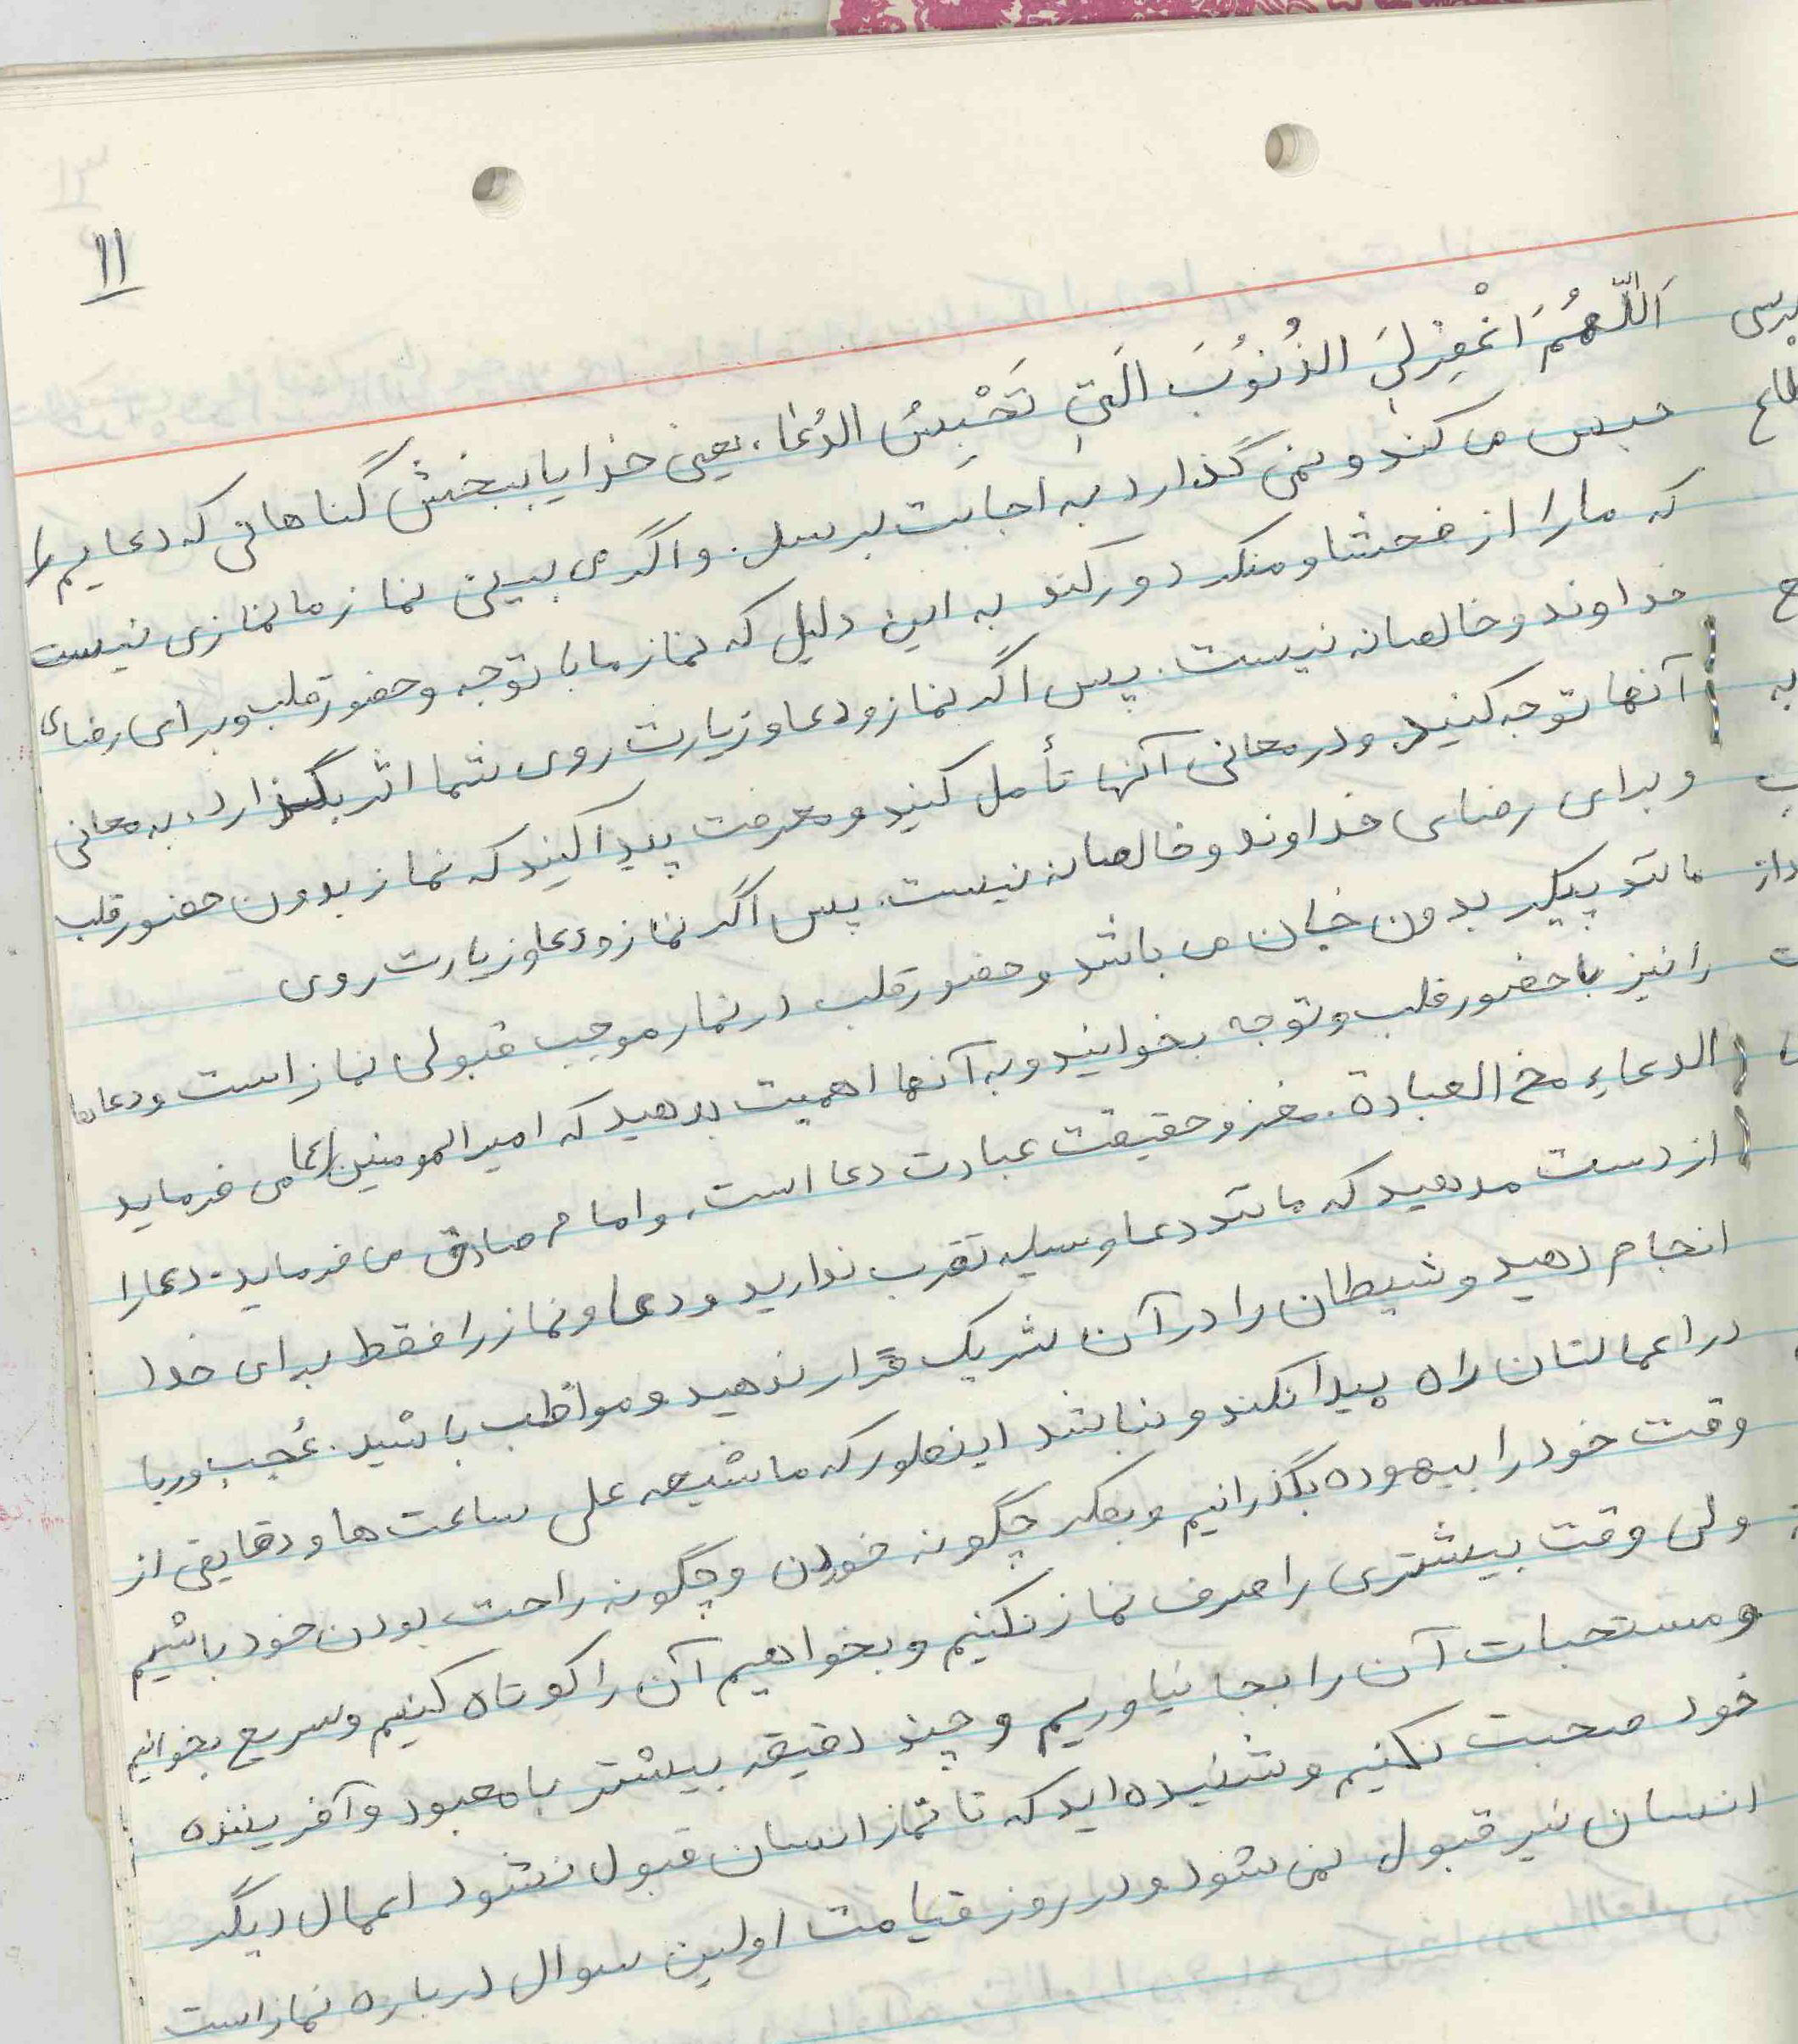 ۱۱
اَللّهُمَ اغْفِرْ لِیَ الذُنوُبَ الَتیِ تَحْبِسُ الدُعا، یعنی خدایا ببخش گناهانی که دعایم را
حبس می کند و نمی گذارد به اجابت برسد. و اگر می بینی نماز ما نمازی نیست
که ما را از فحشا و منکر دور کند به این دلیل که نماز ما با توجه و حضور قلب و برای رضای
خداوند و خالصانه نیست. پس اگر نماز و دعا و زیارت روی شما اثر بگذارد، به معانی
آنها توجه کنید و در معانی آنها تأمل کنید و معرفت پیدا کنید که نماز بدون حضور قلب
و برای رضای خداوند و خالصانه نیست. پس اگر نماز و دعا و زیارت روی
مانند پیکر بدون جان می باشد و حضور قلب در نماز موجب قبولی نماز است و دعاها
را نیز با حضور قلب و توجه بخوانید و به آنها اهمیت بدهید که امیرالمومنین (ع) می فرماید
الدعاءِ مخ العبادة. مغز و حقیقت عبادت دعا است. و امام صادق می فرماید. دعا را
از دست مدهید که مانند دعا وسیله تقرب ندارید و دعا و نماز را فقط برای خدا
انجام دهید و شیطان را در آن شریک قرار ندهید و مواظب باشید. عُجب و ریا
در اعمالتان راه پیدا نکند و نباشد اینطور که ما شیعه علی ساعت ها و دقایقی از
وقت خود را بیهوده بگذرانیم و بفکر چگونه خوردن و چگونه راحت بودن خود باشیم
ولی وقت بیشتری را صرف نماز نکنیم و بخواهیم آن را کوتاه کنیم و سریع بخوانیم
و مستحبات آن را بجا نیاوریم و چند دقیقه بیشتر با معبود و آفریننده
خود صحبت نکنیم و شنیده اید که تا نماز انسان قبول نشود اعمال دیگر
انسان نیز قبول نمی شود و در روز قیامت اولین سوال درباره نماز است